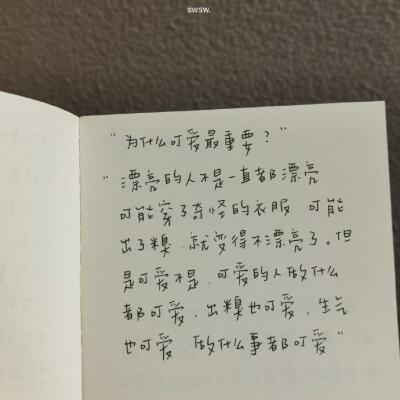 swsw.
“为什么可爱最重要？”
“漂亮的人不是一直都漂亮
可能穿了奇怪的衣服 可能
出了糗.就变得不漂亮了。但
是可爱不是.可爱的人做什么
都可爱.出糗也可爱.生气
也可爱.做什么事都可爱”